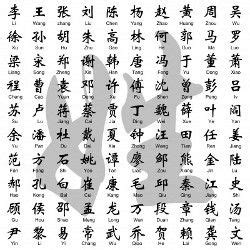 李 王 张 刘 陈 杨 赵 黄 周 吴
Li Wang Zhang Liu Chen Yang Zhao Huang Zhou Wu
徐 孙 胡 朱 高 林 何 郭 马 罗
Xu Sun Hu Zhu Gao Lin He Guo Ma Luo
梁 宋 郑 谢 韩 唐 冯 于 董 萧
Liang Song Zheng Xie Han Tang Feng Yu Dong Xiao
程 曹 袁 邓 许 傅 沈 曾 彭 吕
Cheng Cao Yuan Deng Xu Fu Shen Zeng Peng Lu
苏 卢 蒋 蔡 贾 丁 魏 薛 叶 阎
Su Lu Jiang Cai Jia Ding Wei Xue Ye Yan
余 潘 杜 戴 夏 钟 汪 田 任 姜
Yu Pan Du Dai Xia Zhong Wang Tian Ren Jiang
范 方 石 姚 谭 廖 邹 熊 金 陆
Fan Fang Shi Yao Tan Liao Zou Xiong Jin Lu
郝 孔 白 崔 康 毛 邱 秦 江 史
Hao Kong Bai Cui Kang Mao Qiu Qin Jiang Shi
顾 侯 邵 孟 龙 万 段 章 钱 汤
Gu Hou Shao Meng Long Wan Duan Zhang Qian Tang
尹 黎 易 常 武 乔 贺 赖 龚 文
Yin Li Yi Chang Wu Qiao He Lai Gong Wen
姓